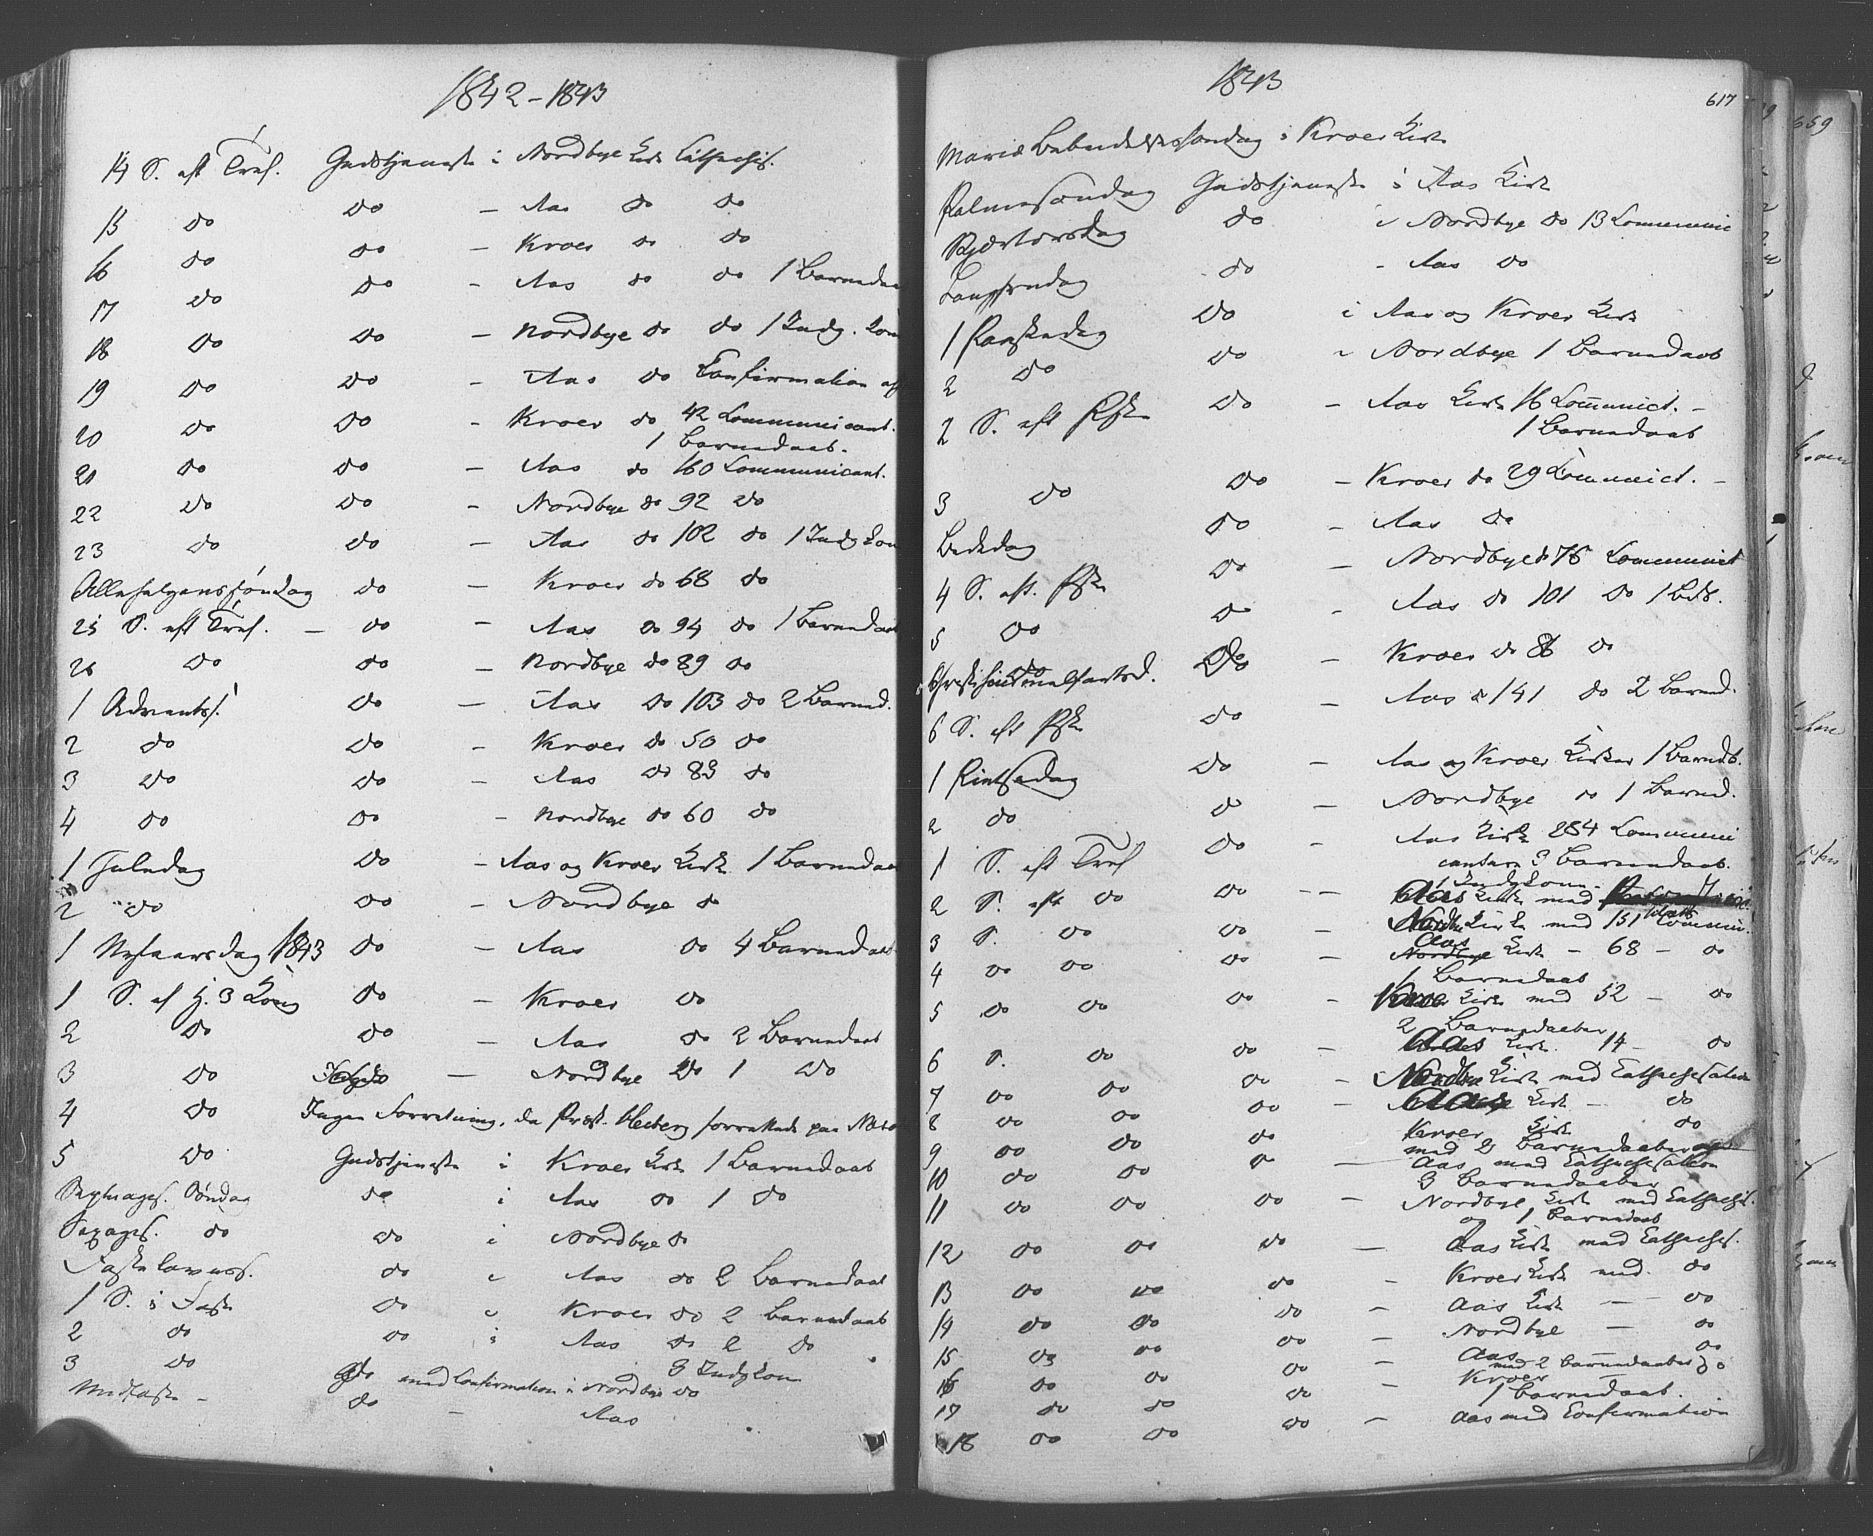 1842 - 1843
14 S. eft Tref. Gudstjeneste i Nordbye Kirk Cathechis.
15 do do - Aas do do
16 do do - Kroer do do
17 do do - Aas do do 1 Barnedaa
18 do do - Nordbye do do 1 Indg. Kon
19 do do - Aas do Confirmation af
20 do do - Kroer do 42 Communicant.
1 Barnedaab.
21 do do - Aas do 160 Communicant.
22 do do - Nordbye do 92 do
23 do do - Aas do 102 do 1 Indg Kon
Allehelgens søndag do - Kroer do 68 do
25 S. eft Tref. - do - Aas do 94 do 1 Barnedaab
26 do do - Nordbye do 89 do
1 Advents. do - Aas do 103 do 2 Barned.
2 do do - Kroer do 50 do
3 do do - Aas do 83 do
4 do do - Nordbye do 60 do
1 Juledag do - Aas og Kroer Kirk 1 Barnedaa
2 do do - Nordbye do
1 Nytaarsdag 1843 do - Aas do 4 Barnedaab
1 S. ef H. 3 Kong do - Kroer do
2 do do - Aas do 2 Barnedaab
3 do do - Nordbye do 1 do
4 do Ingen Forretning, da Præst. forrettede paa
5 do Gudstjeneste i Kroer Kirk 1 Barnedaab
Septuages. Søndag do i Aas do 1 do
Sexages. do do i Nordbye do
Fastelavnss. do i Aas do 2 Barnedaab
1 S. i Faste do i Kroer do 2 Barnedaab
2 do do i Aas do 2 do
3 do do med Confirmation i Nordbye do 3 Indg Kon
Midfaste - do - Aas
1843
617
Mariæ Bebudelsessøndag i Kroer Kirk
Palmesøndag Gudstjeneste i Aas Kirk
Skjærtorsdag do i Nordbye do 13 Communic
Langfredag do - Aas do
1 Paaskedag do i Aas og Kroer Kirk
2 do do i Nordbye 1 Barnedaab
2 S. eft Psk do - Aas Kirk 16 Communict. -
1 Barnedaab
3 do do - Kroer do 29 Communict. -
Bededag do - Aas do
4 S. eft. Psk do - Nordbye do 76 Communict
5 do do - Aas do 101 do 1 Bdb.
Christi himmelfartsd. do - Kroer do 86 do
6 S. eft Psk do - Aas do 141 do 2 Barned.
1 Pintsedag do - Aas og Kroer Kirker 1 Barndb.
2 do do - Nordbye do 1 Barned.
1 S. eft Tref do - Aas Kirk 284 Communi
canter 3 Barnedaab.
1 Indg Kone.
2 S. eft do do - - Aas Kirk med
3 S. do do - Nordbye Kirk med 151 Commun.
4 do do do - Aas Kirk - 68 - do
1 Barnedaab
5 do do do - Kroer Kirk med 52 - do
2 Barnedaaber
6 S. do do - Aas Kirk 14 - do
7 do do do - Nordbye Kirk med Cathechesation
8 do do do - Aas Kirk - do
9 do do do Kroer Kirk do
med 2 Barnedaaber
10 do do do - Aas med Cathechesation
3 Barnedaaber
11 do do do - Nordbye Kirk med Cathechis.
og 1 Barnedaab
12 do do do - Aas Kirk med Cathechis.
13 do do do Kroer Kirk med do
14 do do do - Aas Kirk - do
15 do do do - Nordbye - do
16 do do do - Aas - do
med 2 Barnedaaber
17 do do do Kroer - do
1 Barnedaab.
18 do do do - Aas med Confirmation